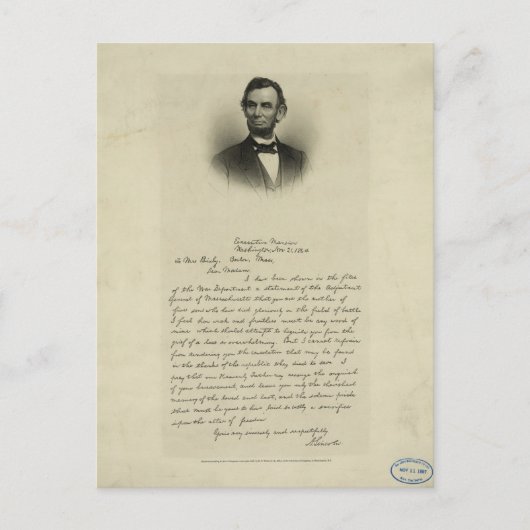 Executive Mansion
Washington, Nov. 21, 1864
To Mrs Bixby, Boston, Mass.
Dear Madam
I have been shown in the files
of the War Department a statement of the Adjutant
General of Massachusetts that you are the mother of
five sons who have died gloriously on the field of battle
I feel how weak and fruitless must be any word of
mine which should attempt to beguile you from the
grief of a loss so overwhelming. But I cannot refrain
from tendering you the consolation that may be found
in the thanks of the republic they died to save. I
pray that our Heavenly Father may assuage the anguish
of your bereavement, and leave you only the cherished
memory of the loved and lost, and the solemn pride
that must be yours to have laid so costly a sacrifice
upon the altar of freedom
Yours very sincerely and respectfully
A. Lincoln
NOV 11 1897